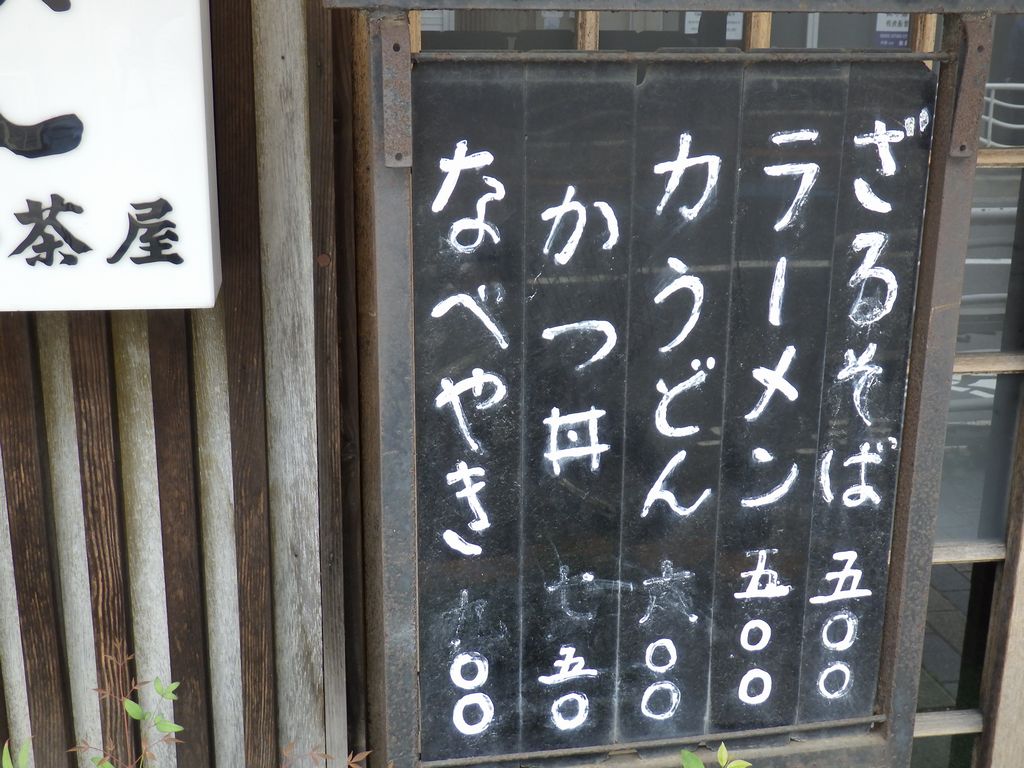 ざるそば 五〇〇
ラーメン 五〇〇
力うどん 六〇〇
かつ丼 七五〇
なべやき 九〇〇
茶屋